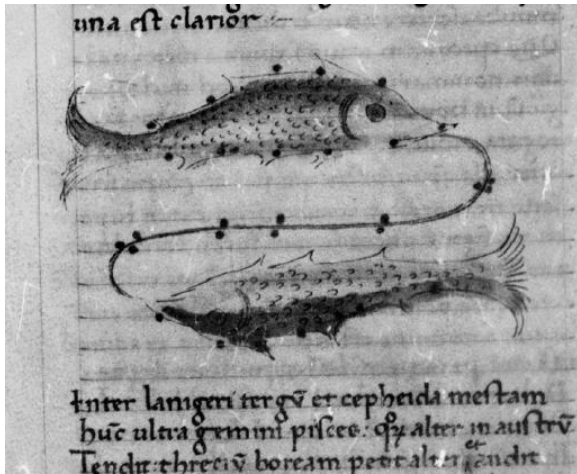 una est clarior
Inter lanigeri tergũ et cepheida mestam
hũc ultra gemini pisces: quoꝝ alter in austrũ
Tendit: threciũ boream petit alter et audit